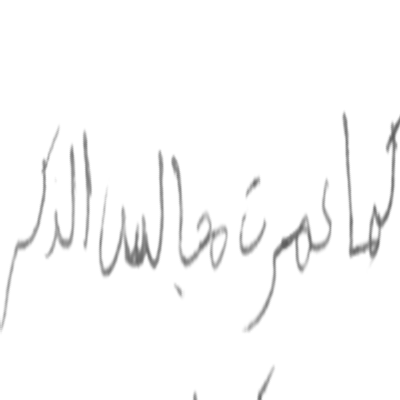 كما عمرت مجالس الذكر